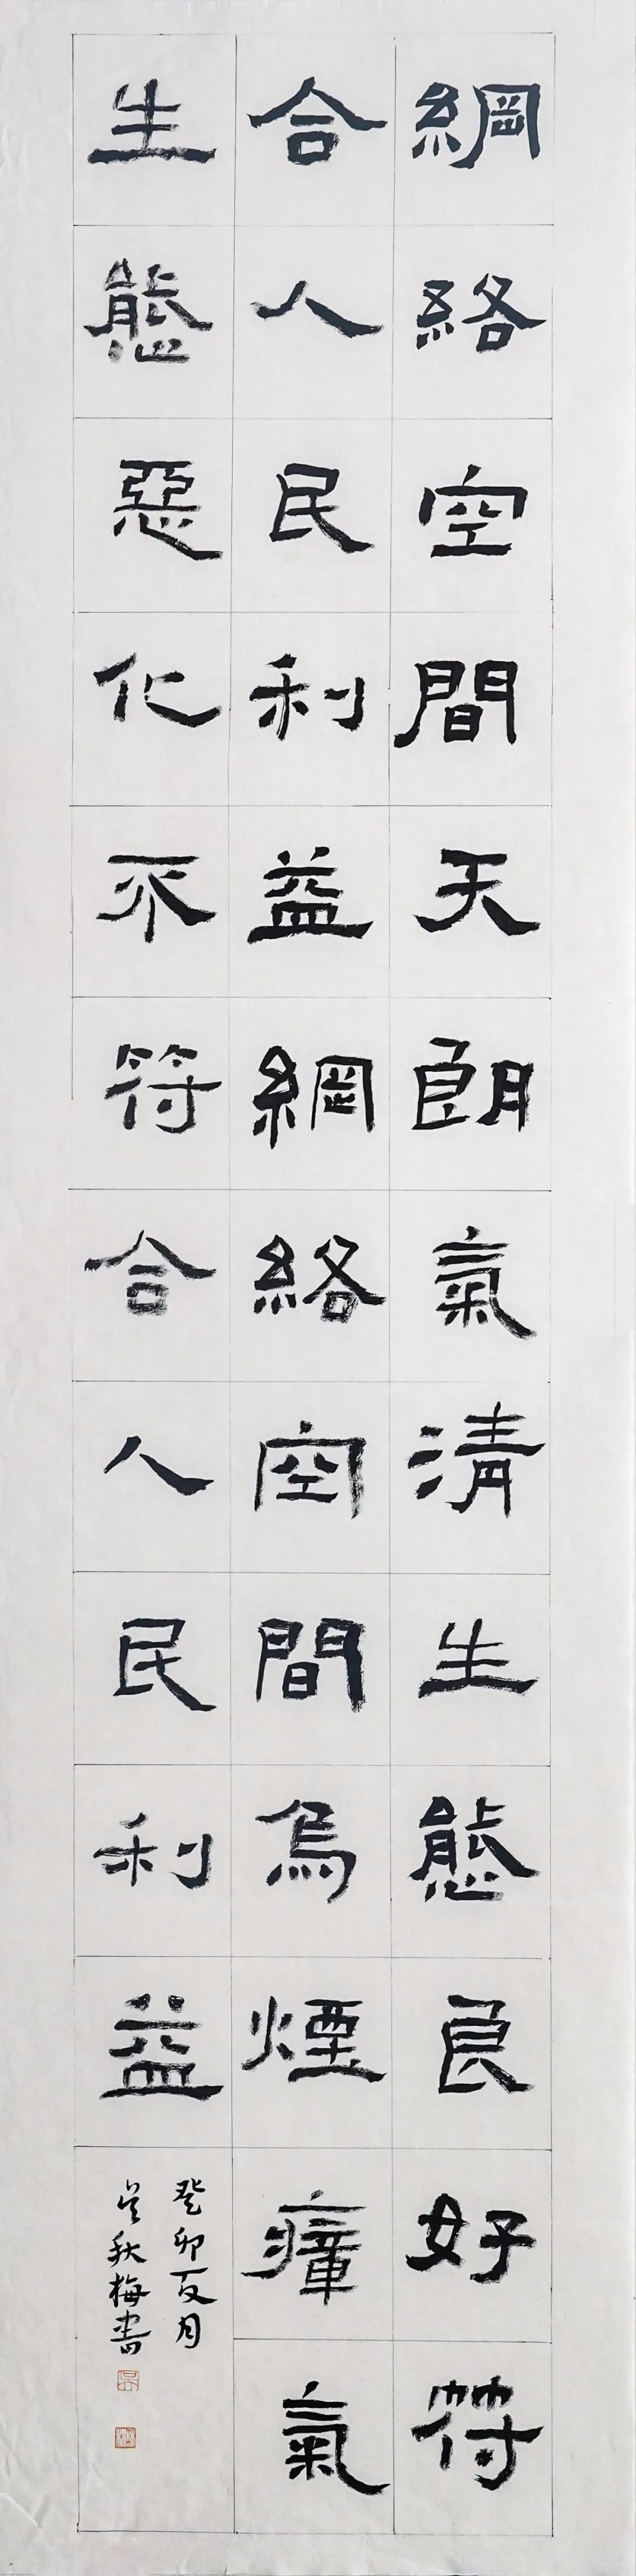 綱絡空間天朗氣清生態良好符
合人民利益網絡空間烏煙瘴氣
生態惡化不符合人民利益
癸卯夏月
吳秋梅書